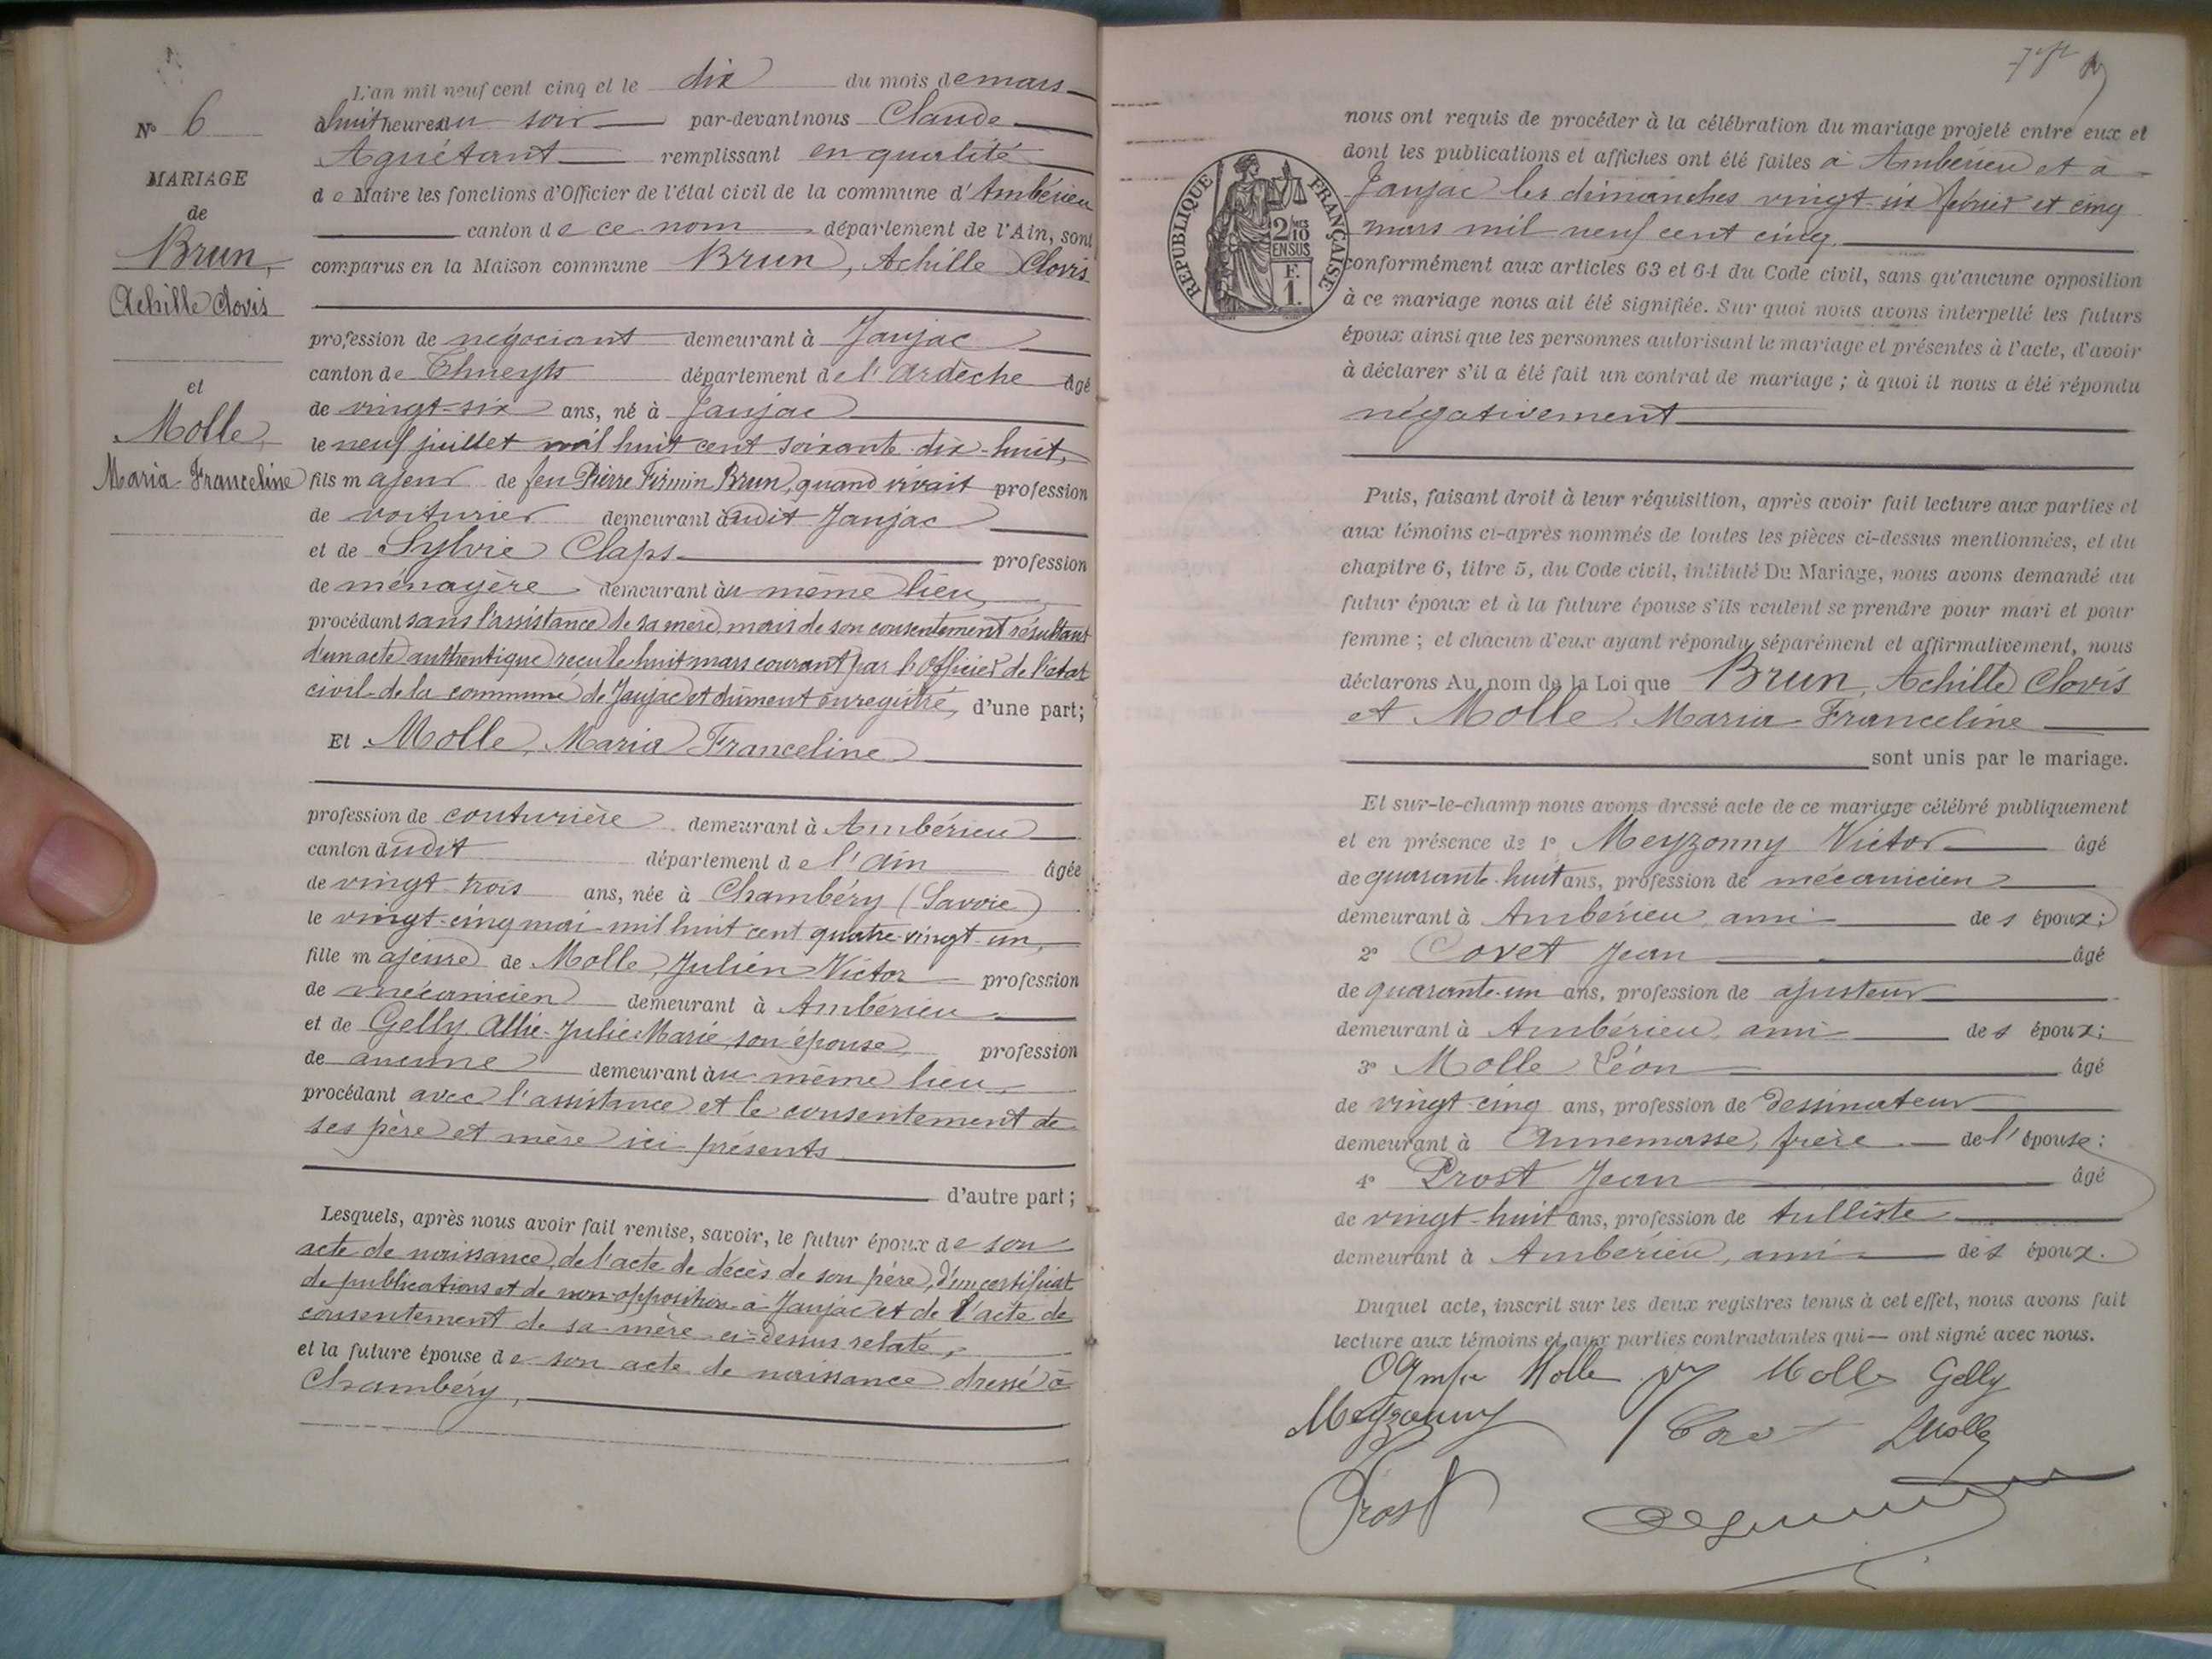 L'an mil neuf cent cinq et le dix du mois de mars
à huit heures du soir par-devant nous Claude
Aguétant remplissant en qualité
de Maire les fonctions d'Officier de l'état civil de la commune d'Ambérieu
canton de ce nom département de l'Ain, sont
comparus en la Maison commune Brun, Achille Clovis
profession de négociant demeurant à Jaujac
canton de Thueyts département de l'Ardèche âgé
de vingt-six ans, né à Jaujac
le neuf juillet mil huit cent soixante-dix-huit,
fils majeur de feu Pierre Firmin Brun, quand vivait profession
de voiturier demeurant audit Jaujac
et de Sylvie Claps profession
de ménagère demeurant au même lieu,
procédant sans l'assistance de sa mère, mais de son consentement résultant
d'un acte authentique reçu le huit mars courant par l'Officier de l'état
civil de la commune de Jaujac et dûment enregistré, d'une part;
Et Molle, Maria Franceline
profession de couturière demeurant à Ambérieu
canton dudit département de l'Ain âgée
de vingt-trois ans, née à Chambéry (Savoie)
le vingt-cinq mai mil huit cent quatre-vingt-un,
fille majeure de Molle, Julien Victor profession
de mécanicien demeurant à Ambérieu
et de Gelly Allié Julie Marie, son épouse profession
de aucune demeurant au même lieu,
procédant avec l'assistance et le consentement de
ses père et mère ici présents
d'autre part;
Lesquels, après nous avoir fait remise, savoir, le futur époux de son
acte de naissance, de l'acte de décès de son père, d'un certificat
de publications et de non-opposition à Jaujac et de l'acte de
consentement de sa mère ci-dessus relaté,
et la future épouse de son acte de naissance dressé à
Chambéry,
N° 6
MARIAGE
de
Brun,
Achille Clovis
et
Molle,
Maria Franceline
nous ont requis de procéder à la célébration du mariage projeté entre eux et
dont les publications et affiches ont été faites à Ambérieu et à
Jaujac les dimanches vingt-six février et cinq
mars mil neuf cent cinq.
conformément aux articles 63 et 64 du Code civil, sans qu'aucune opposition
à ce mariage nous ait été signifiée. Sur quoi nous avons interpellé les futurs
époux ainsi que les personnes autorisant le mariage et présentes à l'acte, d'avoir
à déclarer s'il a été fait un contrat de mariage; à quoi il nous a été répondu
négativement
RÉPUBLIQUE FRANÇAISE
2/10
EN SUS
F.
1.
Puis, faisant droit à leur réquisition, après avoir fait lecture aux parties et
aux témoins ci-après nommés de toutes les pièces ci-dessus mentionnées, et du
chapitre 6, titre 5, du Code civil, intitulé Du Mariage, nous avons demandé au
futur époux et à la future épouse s'ils veulent se prendre pour mari et pour
femme; et chacun d'eux ayant répondu séparément et affirmativement, nous
déclarons Au nom de la Loi que Brun, Achille Clovis
et Molle, Maria Franceline
sont unis par le mariage.
Et sur-le-champ nous avons dressé acte de ce mariage célébré publiquement
et en présence de 1° Meyzonny Victor âgé
de quarante-huit ans, profession de mécanicien
demeurant à Ambérieu, ami des époux;
2° Covet Jean âgé
de quarante-un ans, profession de ajusteur
demeurant à Ambérieu, ami des époux;
3° Molle Léon âgé
de vingt-cinq ans, profession de dessinateur
demeurant à Annemasse, frère de l'épouse;
4° Prost Jean âgé
de vingt-huit ans, profession de tulliste
demeurant à Ambérieu, ami des époux.
Duquel acte, inscrit sur les deux registres tenus à cet effet, nous avons fait
lecture aux témoins et aux parties contractantes qui — ont signé avec nous.
Molle Molle Gelly
Meyzonny Covet LMolle
Prost